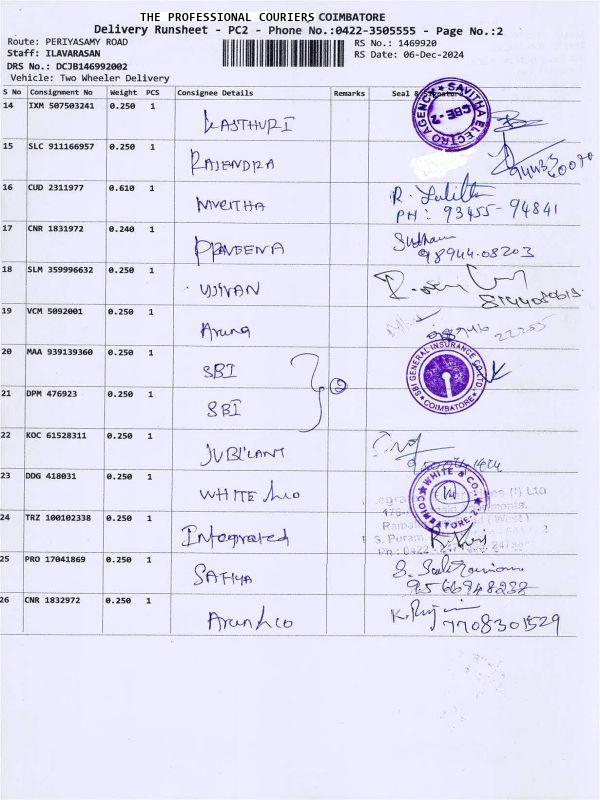 THE PROFESSIONAL COURIERS COIMBATORE
Delivery Runsheet - PC2 - Phone No.:0422-3505555 - Page No.:2
Route: PERIYASAMY ROAD
RS No.: 1469920
Staff: ILAVARASAN
RS Date: 06-Dec-2024
DRS No.: DCJB146992002
Vehicle: Two Wheeler Delivery
S No Consignment No Weight PCS Consignee Details Remarks Seal & Signature
14 IXM 507503241 0.250 1 KASTHURI
SAVITHA ELECTRO AGENCY CBE-2
15 SLC 911166957 0.250 1 RAJENDRA
16 CUD 2311977 0.610 1 NIVEITHA R. Lalitha
PH: 93455-94841
17 CNR 1831972 0.240 1 PRAVEENA
98944.08203
18 SLM 359996632 0.250 1 UJIVAN
19 VCM 5092001 0.250 1 Aruna
20 MAA 939139360 0.250 1 SBI
2
SBI GENERAL INSURANCE CO LTD COIMBATORE
21 DPM 476923 0.250 1 SBI
22 KOC 61528311 0.250 1 JUBILANT
23 DDG 418031 0.250 1 WHITE & co
WHITE & CO. COIMBATORE-2
24 TRZ 100102338 0.250 1 Integrated
25 PRO 17041869 0.250 1 SATHYA
9566948238
26 CNR 1832972 0.250 1 Arun & co
7708301529